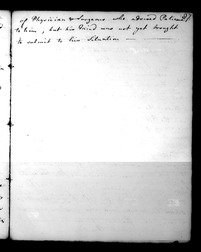 of Physician & Surgeons who advised Patience
to him, but his Mind was not yet brought
to submit to his Situation —